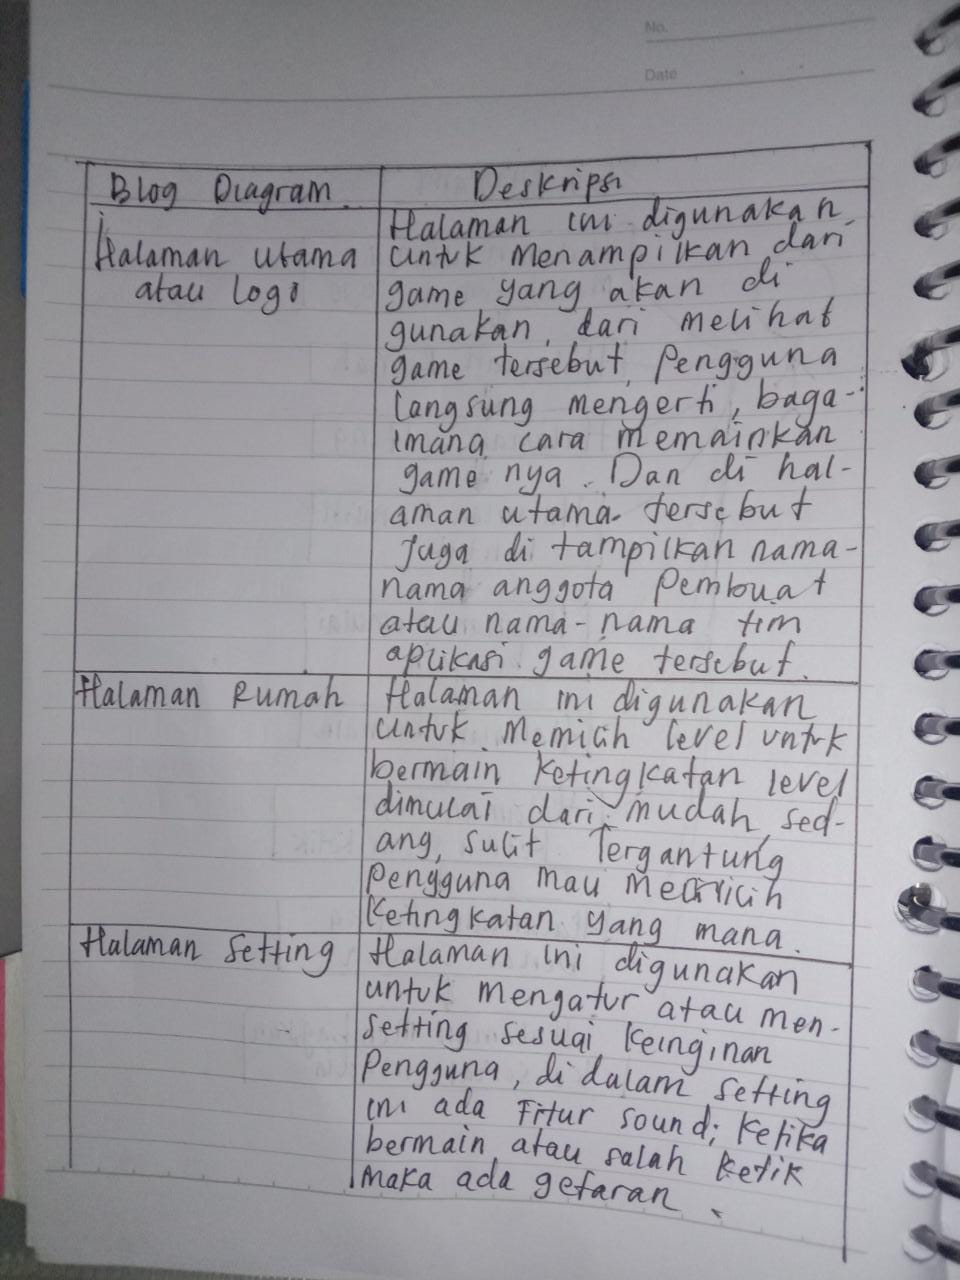 No.
Date
Blog Diagram.
Deskripsi
Halaman utama
atau Logo
Halaman ini digunakan
untuk menampilkan dari
game yang akan di
gunakan, dari melihat
game tersebut, pengguna
langsung mengerti, baga-
imana cara memainkan
game nya. Dan di hal-
aman utama tersebut
juga di tampilkan nama-
nama anggota pembuat
atau nama-nama tim
aplikasi game tersebut.
Halaman Rumah
Halaman ini digunakan
untuk memilih level untuk
bermain ketingkatan level
dimulai dari mudah, sed-
ang, sulit Tergantung
pengguna mau
ketingkatan yang mana.
Halaman setting
Halaman ini digunakan
untuk mengatur atau men-
setting sesuai keinginan
pengguna, di dalam setting
ini ada fitur sound; ketika
bermain atau salah ketik
maka ada getaran.